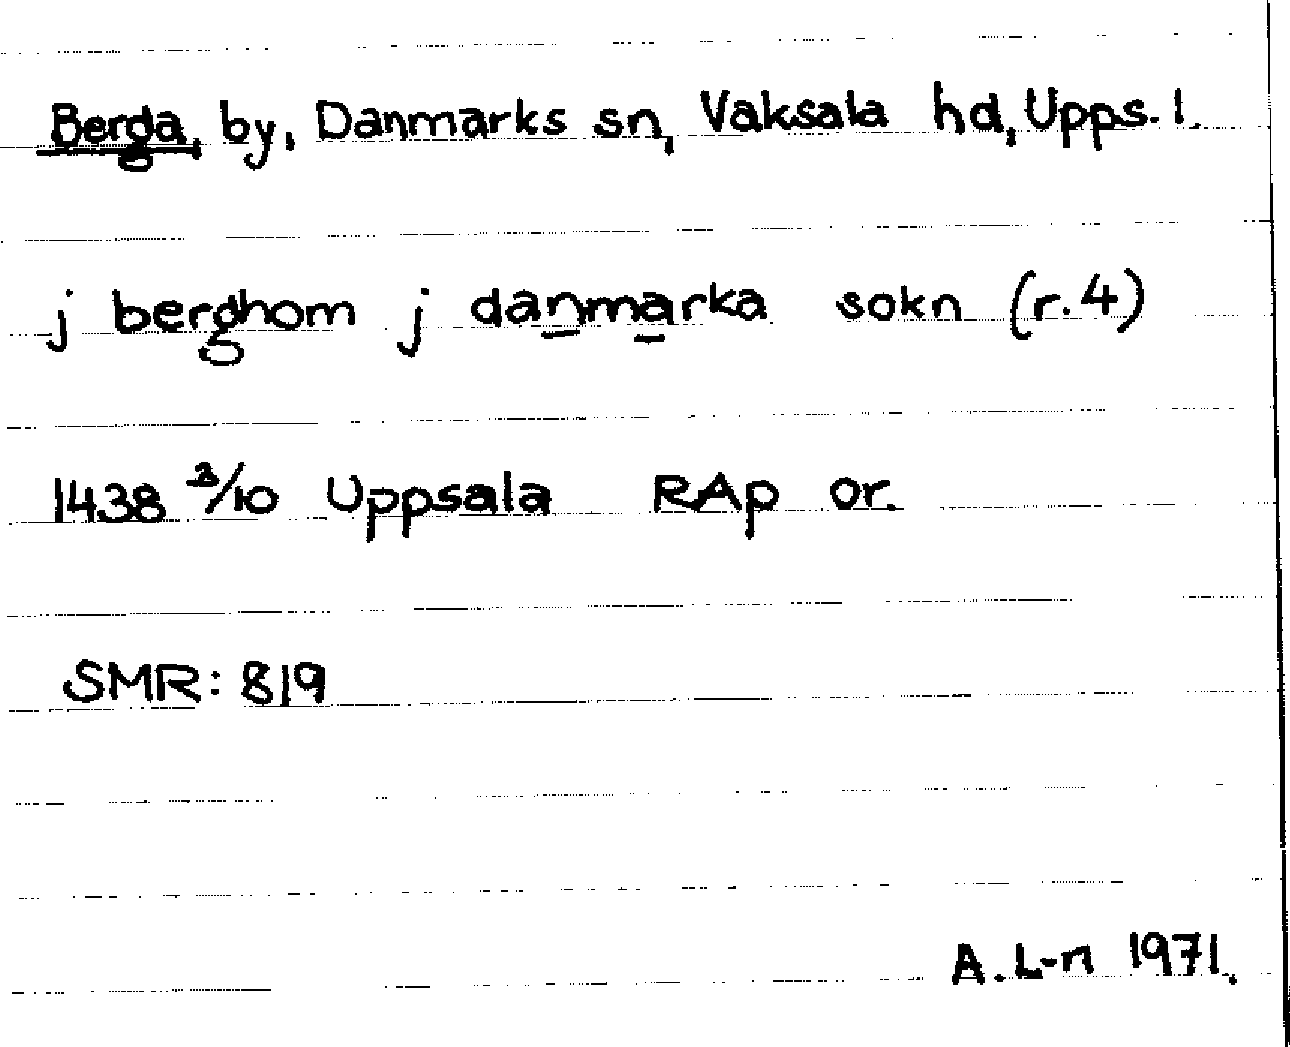 Berga, by, Danmarks sn, Vaksala hd, Upps. l.
j berghom j danmarka sokn (r.4)
1438 3/10 Uppsala RAp or.
SMR: 819
A. L-n 1971.